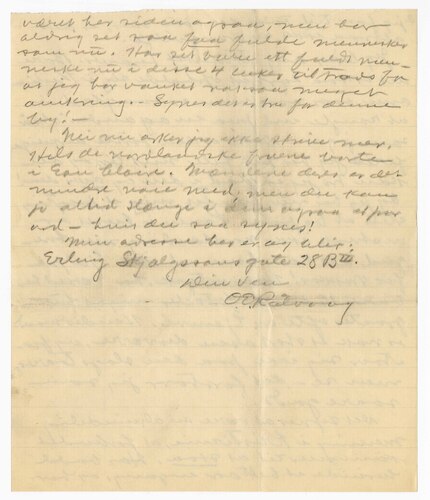 været her siden ogsaa, men har
aldrig set saa faa fulde mennesker
som nu. Har set bare ett fuldt men-
neske nu i disse 4 uker, til trods for
at jeg har vanket noksaa meget
omkring. – Synes det er bra for denne
by! –
Nei nu orker jeg ikke skrive mer.
Hils de nordlandske fruene borte
i Eau Claire. Mændene deres er det
mindre nøie med, men du kan
jo altid slænge i dem ogsaa et par
ord – hvis du saa synes!
Min adresse her er og blir:
Erling Skjalgssons gate 28 B III.
Din ven
O. E. Rølvaag